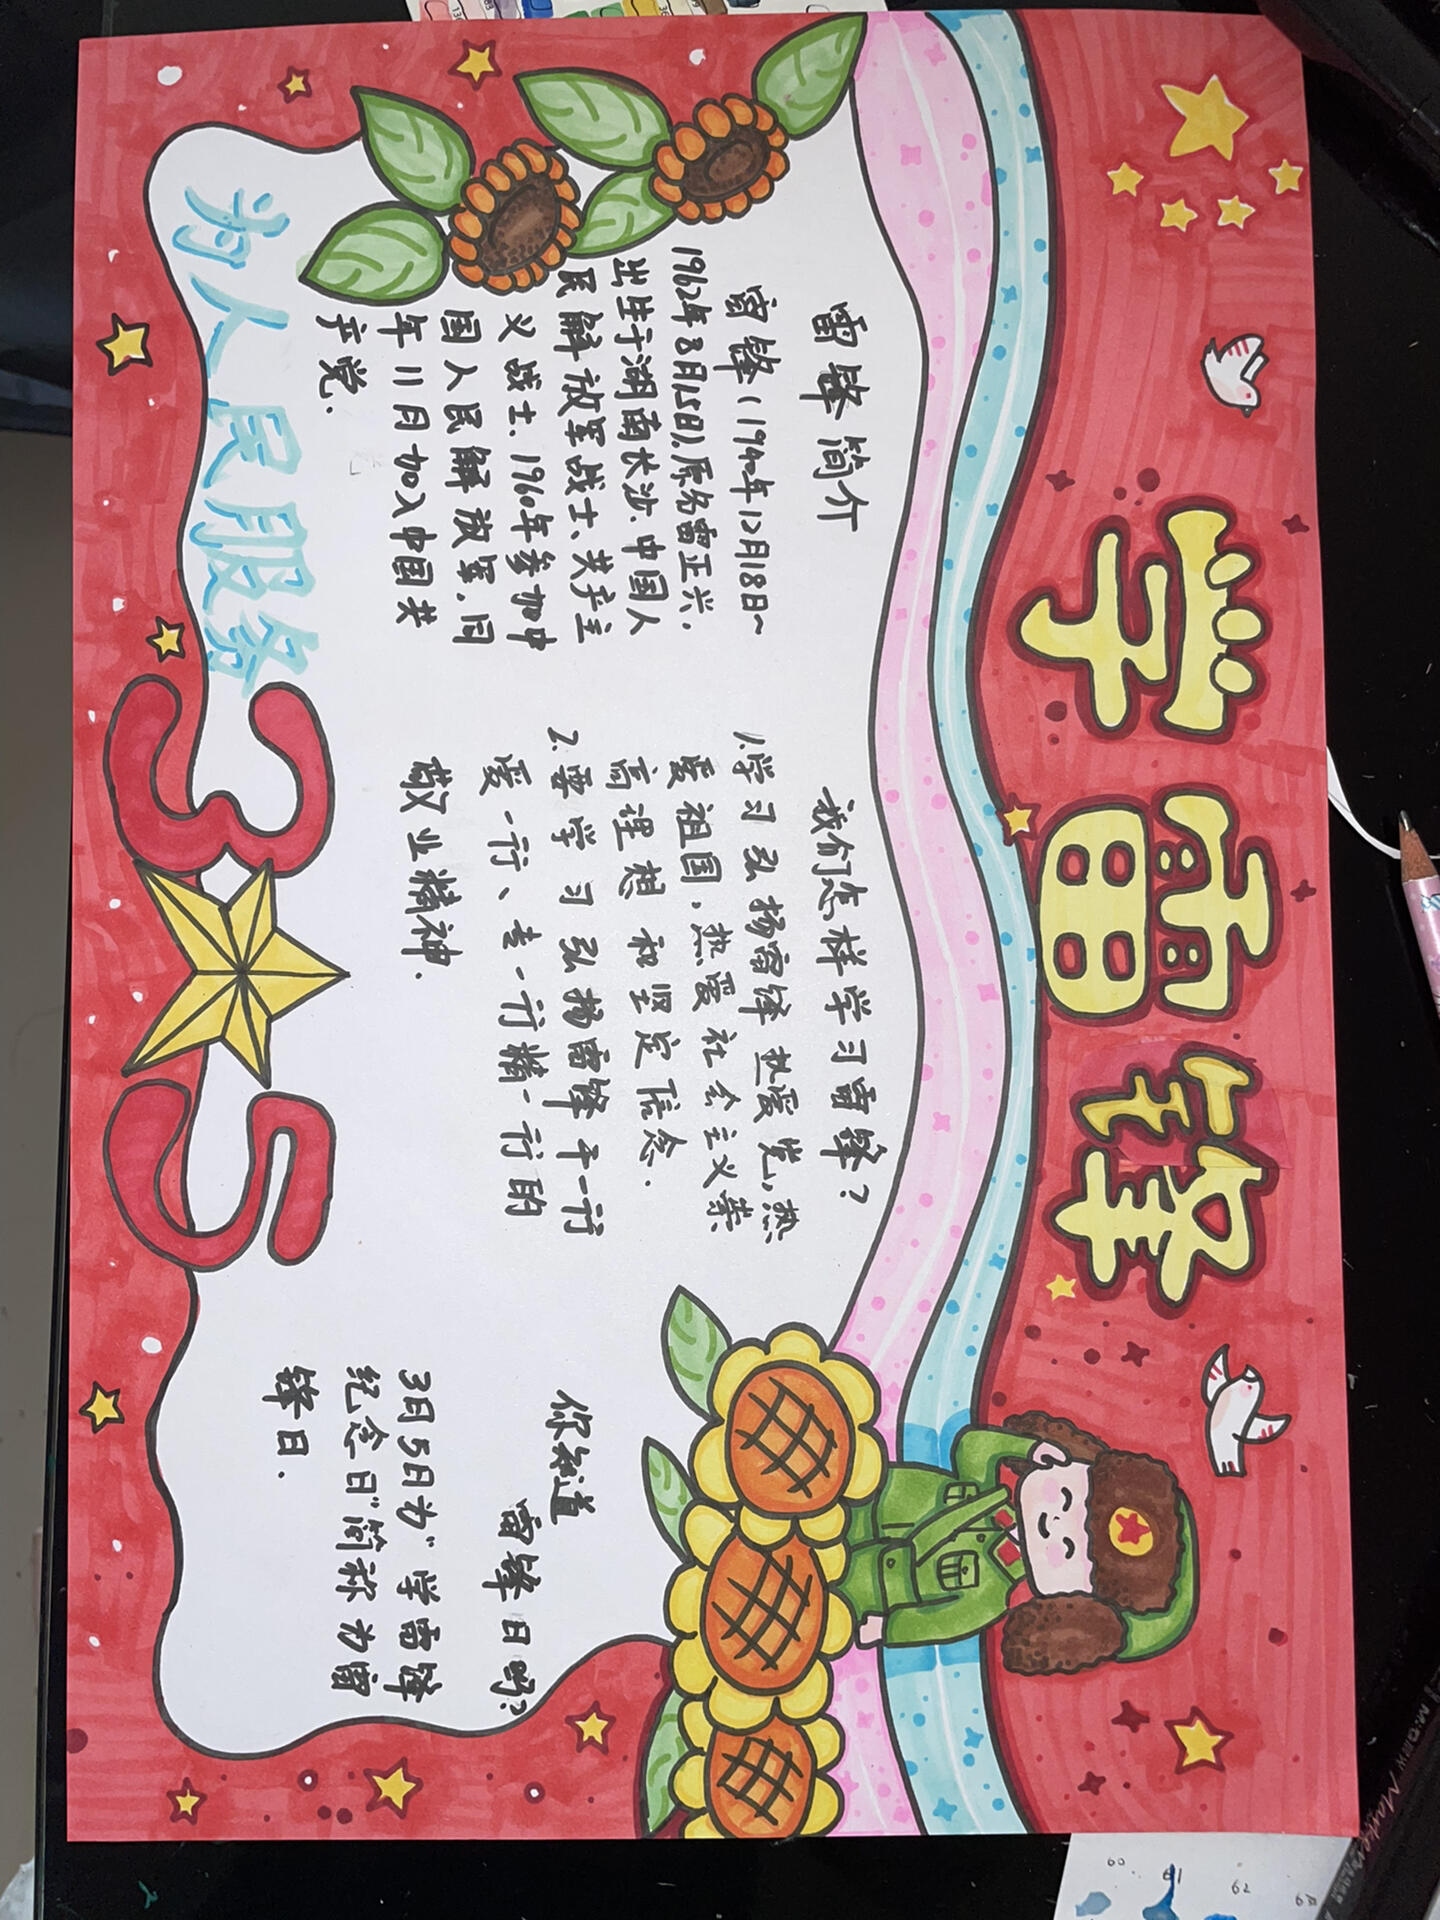 学雷锋
雷锋简介
雷锋(1940年12月18日~
1962年8月15日),原名雷正兴,
出生于湖南长沙.中国人
民解放军战士、共产主
义战士.1960年参加中
国人民解放军.同
年11月加入中国共
产党.
我们怎样学习雷锋?
1.学习弘扬雷锋热爱党,热
爱祖国,热爱社会主义崇
高理想和坚定信念.
2.要学习弘扬雷锋干一行
爱一行、专一行精一行的
敬业精神.
你知道
雷锋日吗?
3月5日为“学雷锋
纪念日”简称为雷
锋日.
为人民服务
3 5
60 61 62 63